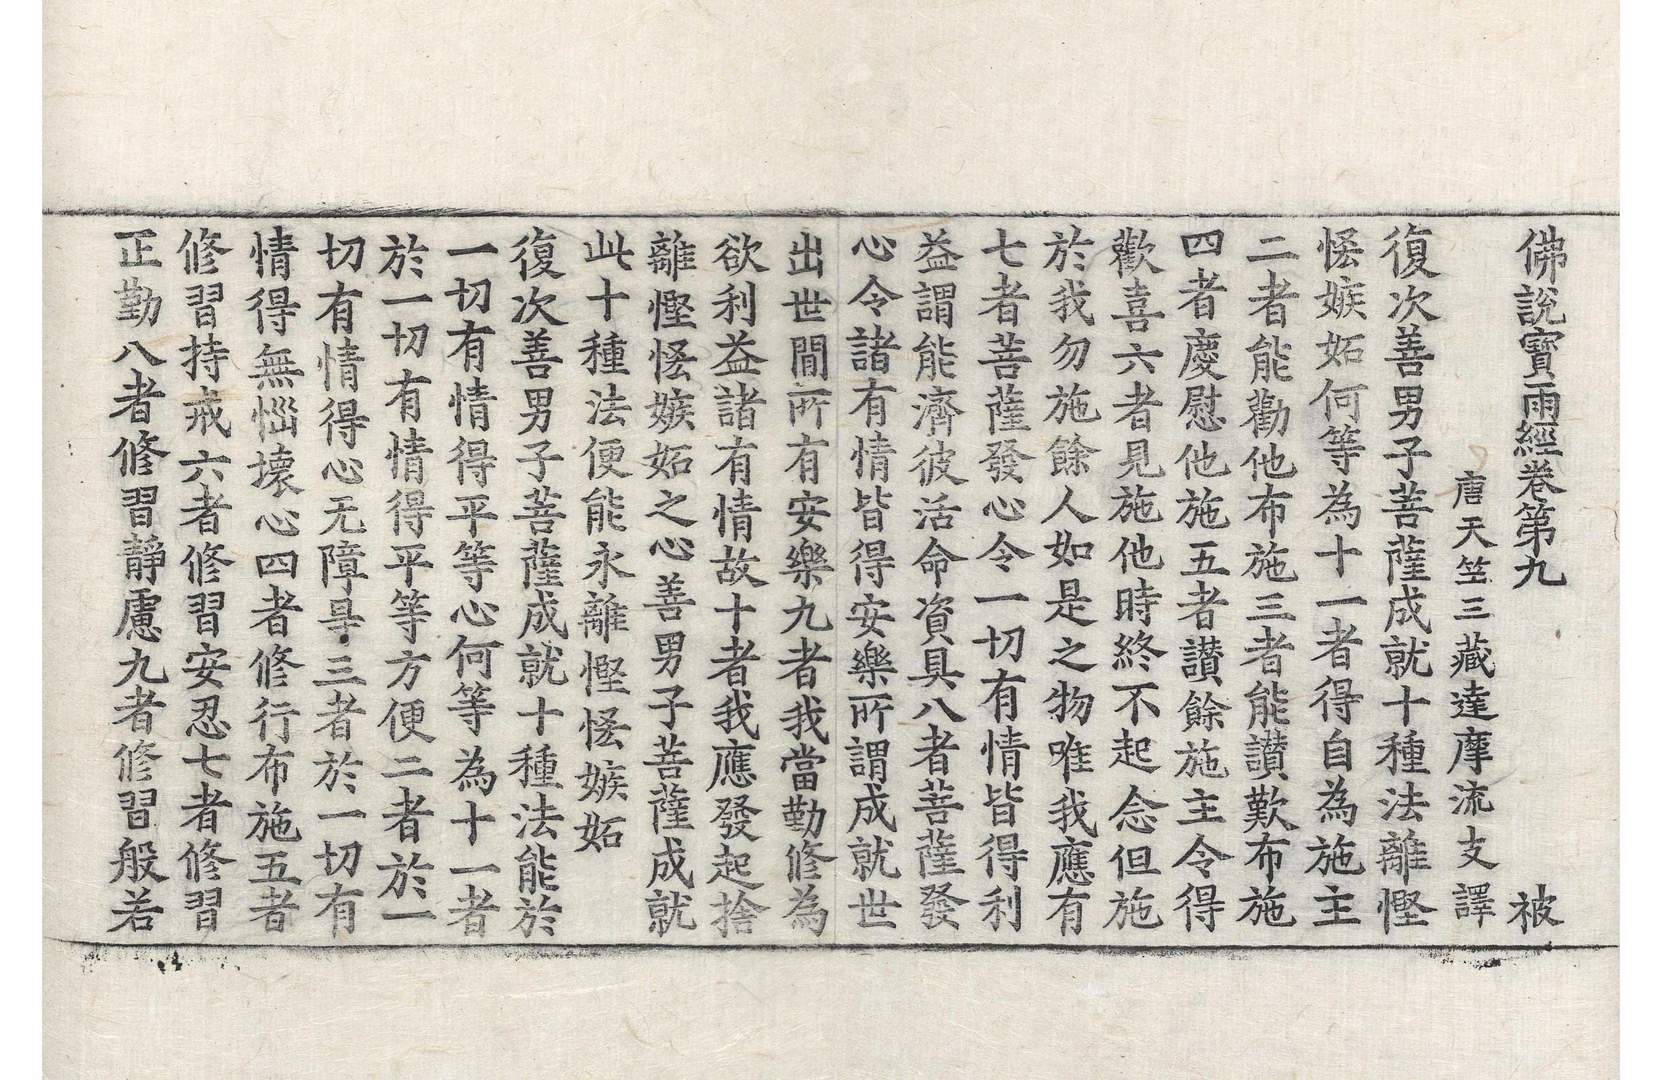 佛說寶雨經卷第九　被
唐天竺三藏達摩流支譯
復次善男子菩薩成就十種法離慳
恡嫉妬何等為十一者得自為施主
二者能勸他布施三者能讃歎布施
四者慶慰他施五者讃餘施主令得
歡喜六者見施他時終不起念但施
於我勿施餘人如是之物唯我應有
七者菩薩發心令一切有情皆得利
益謂能濟彼活命資具八者菩薩發
心令諸有情皆得安樂所謂成就世
出世間所有安樂九者我當勤修為
欲利益諸有情故十者我應發起捨
離慳恡嫉妬之心善男子菩薩成就
此十種法便能永離慳恡嫉妬
復次善男子菩薩成就十種法能於
一切有情得平等心何等為十一者
於一切有情得平等方便二者於一
切有情得心无障㝵三者於一切有
情得無惱壞心四者修行布施五者
修習持戒六者修習安忍七者修習
正勤八者修習靜慮九者修習般若